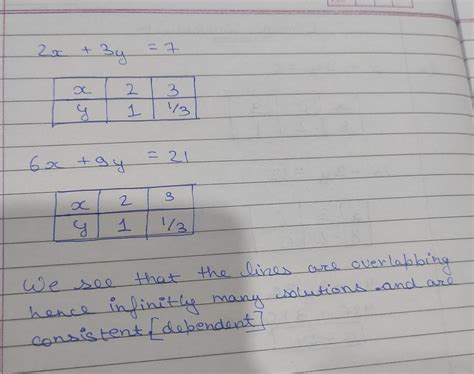 2x + 3y = 7
x 2 3
y 1 1/3
6x + 9y = 21
x 2 3
y 1 1/3
We see that the lines are overlabbing
hence infinitly many solutions and are
consistent [dependent]